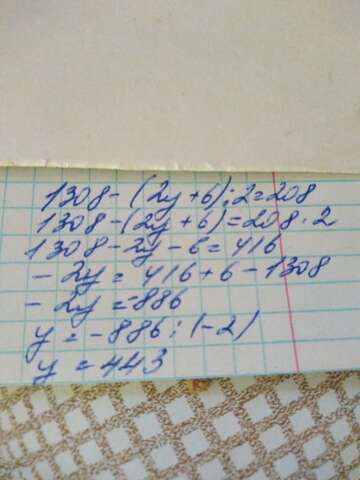 1308-(2y+6):2=208
1308-(2y+6)=208·2
1308-2y-6=416
-2y=416+6-1308
-2y=-886
y=-886:(-2)
y=443